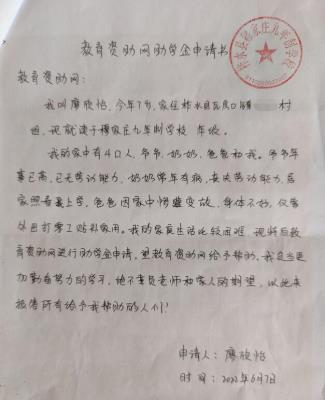 教育资助网助学金申请书
教育资助网：
我叫廖欣怡，今年7岁，家住柞水县瓦房口镇 村
组，现就读于穆家庄九年制学校 年级。
我的家中有4口人，爷爷、奶奶、爸爸和我。爷爷年
事已高，已无劳动能力，奶奶常年有病，丧失劳动能力，居
家照看我上学，爸爸因家中情遭变故，身体不好，仅靠
外出打零工贴补家用。我的家庭生活比较困难，现特向教
育资助网进行助学金申请，望教育资助网给予帮助。我定当更
加勤奋努力的学习，绝不辜负老师和家人的期望，以此来
报答所有给予我帮助的人们！
申请人：廖欣怡
时间：2022年6月7日
柞水县穆家庄九年制学校